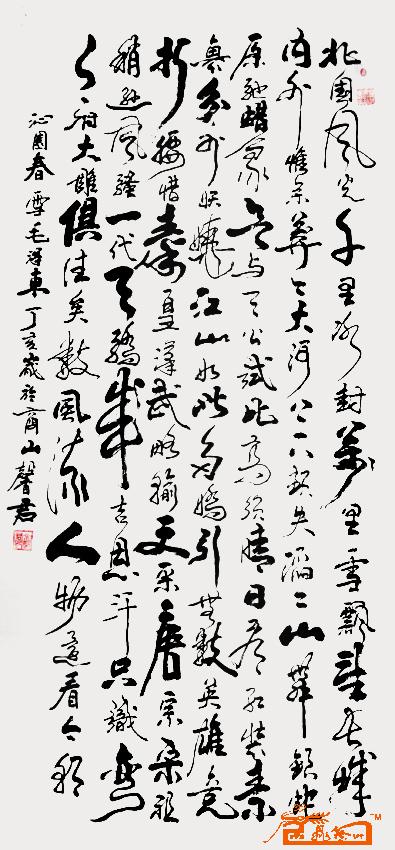 北國风光千里冰封萬里雪飄望长城
内外惟余莽々大河上下頓失滔々山舞銀蛇
原驰蜡象欲与天公試比高须晴日看红装素
裹分外妖娆江山如此多嬌引無數英雄竞
折腰惜秦皇漢武略輸文采唐宗宋祖
稍逊风骚一代天骄成吉思汗只識弯
弓射大雕俱往矣數風流人物還看今朝
沁園春雪毛泽東丁亥歲於商山馨君